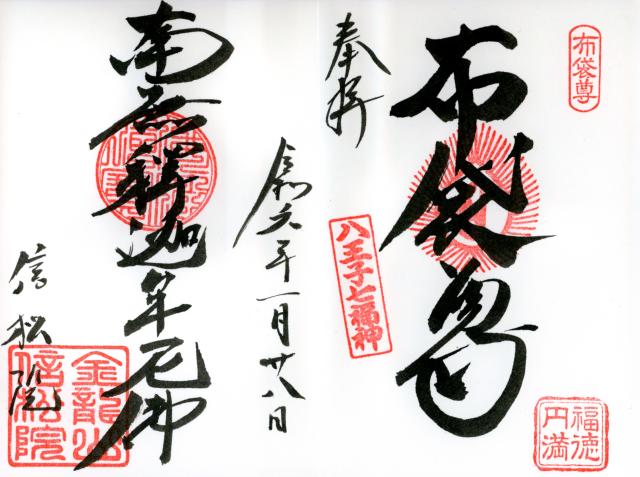 布袋尊
布袋尊
福徳円満
奉拝
八王子七福神
令和六年一月廿八日
南無釋迦牟尼佛
信松院
金龍山
信松院